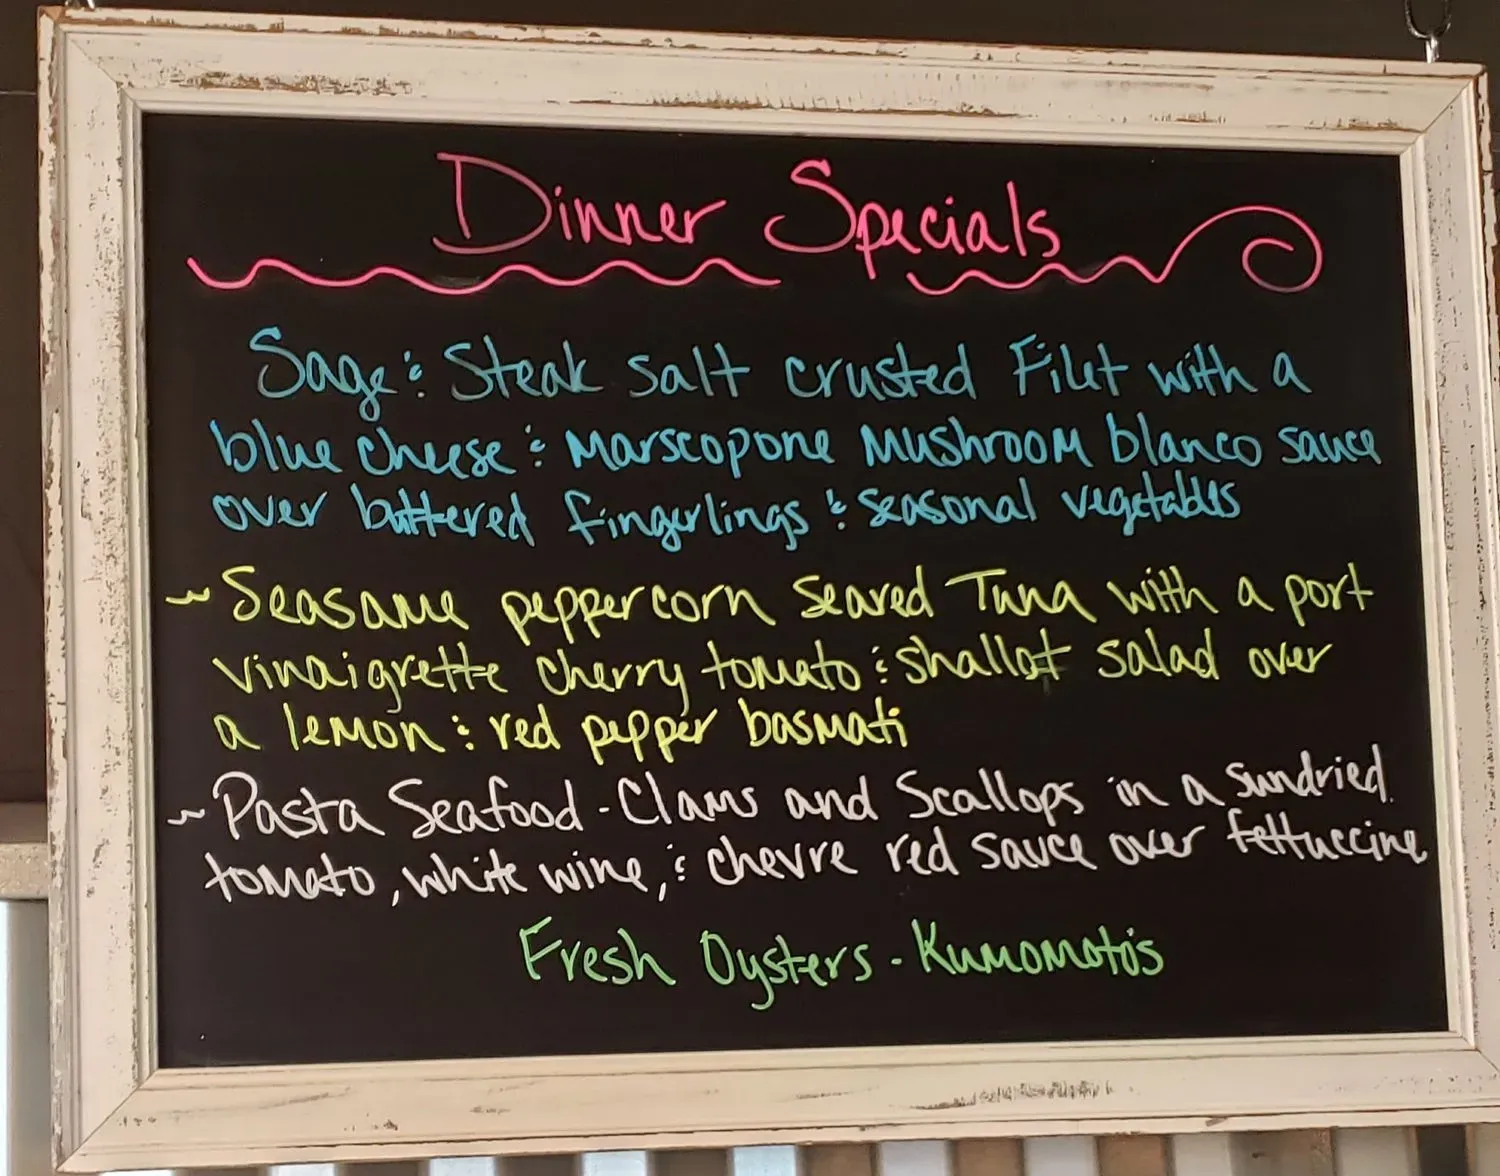 Dinner Specials
Sage & Steak salt crusted Filet with a
blue cheese & Marscopone Mushroom blanco sauce
over buttered fingerlings & seasonal vegetables
~ Seasame peppercorn seared Tuna with a port
vinaigrette cherry tomato & shallot salad over
a lemon & red pepper basmati
~ Pasta Seafood - Clams and Scallops in a sundried
tomato, white wine, & chevre red sauce over fettuccine
Fresh Oysters - Kumomoto's